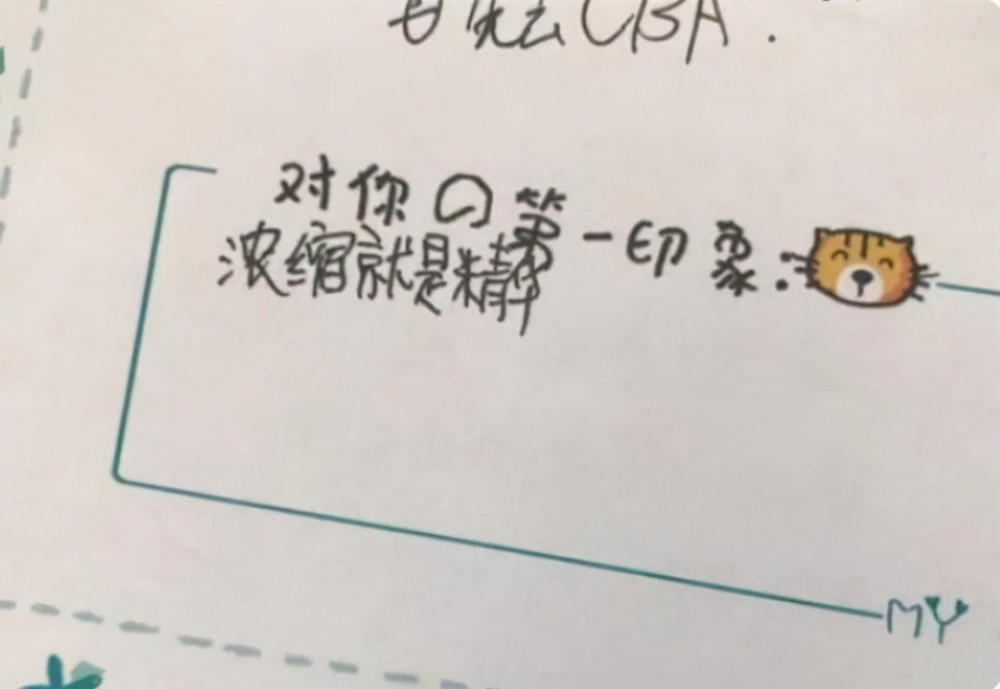 CBA.
对你の第一印象:
浓缩就是精华
MY